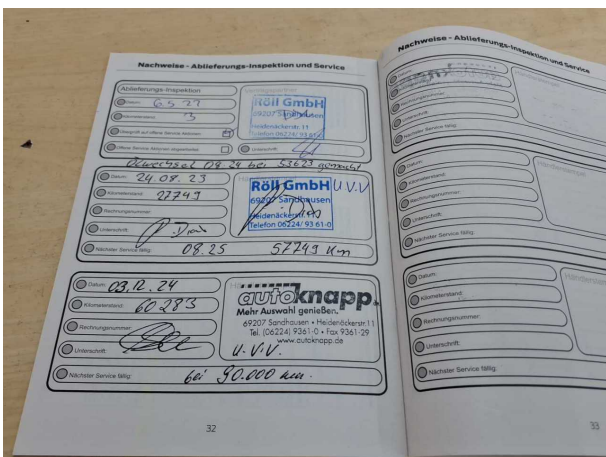 Nachweise - Ablieferungs-Inspektion und Service
Ablieferungs-Inspektion
Datum: 6.5 21
Kilometerstand: 3
Geprüft auf offene Service Aktionen
Offene Service Aktionen abgearbeitet
Röll GmbH
69207 Sandhausen
Heidenäckerstr. 11
Telefon 06224/ 93 61-0
Unterschrift:
Ölwechsel 08 24 bei 53623 gemacht
Datum: 24.08.23
Kilometerstand: 27749
Rechnungsnummer:
Unterschrift:
Röll GmbH U.V.V
69207 Sandhausen
Heidenäckerstr. 11
Telefon 06224/ 93 61-0
Nächster Service fällig: 08.25 57749 Km
Datum: 03.12.24
Kilometerstand: 60283
Rechnungsnummer:
Unterschrift:
autoknapp.
Mehr Auswahl genießen.
69207 Sandhausen • Heidenäckerstr.11
Tel. (06224) 9361-0 • Fax 9361-29
www.autoknapp.de
U.V.V.
Nächster Service fällig: bei 90.000 km.
32
Nachweise - Ablieferungs-Inspektion und Service
Datum:
Rechnungsnummer:
Unterschrift:
Nächster Service fällig:
Datum:
Kilometerstand:
Rechnungsnummer:
Unterschrift:
Nächster Service fällig:
Datum:
Kilometerstand:
Rechnungsnummer:
Unterschrift:
Nächster Service fällig:
33